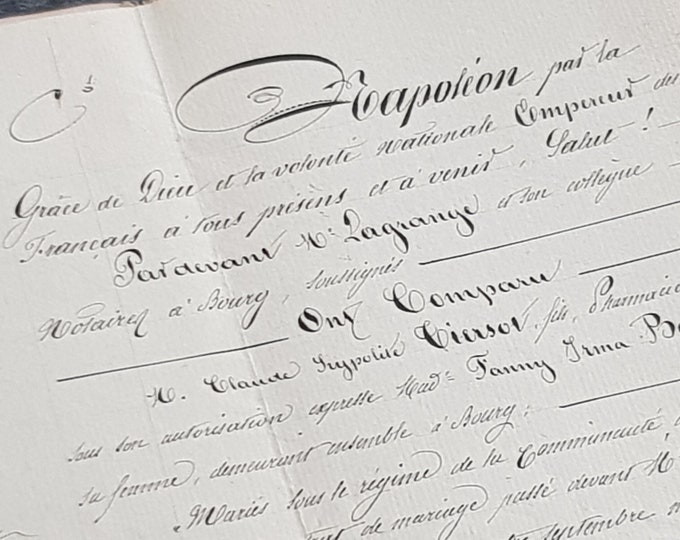 Napoléon par la
Grâce de Dieu et la volonté Nationale Empereur du
Français à tous présens et à venir, Salut !
Pardevant Mr. Lagrange et son collègue
Notaires à Bourg, soussignés
Ont Comparu
M. Claude Hypolite Tiersot, fils,
sous son autorisation expresse Made. Fanny Irma
sa femme, demeurant ensemble à Bourg ;
Mariés sous le régime de la Communauté
de mariage passé devant M.
septembre